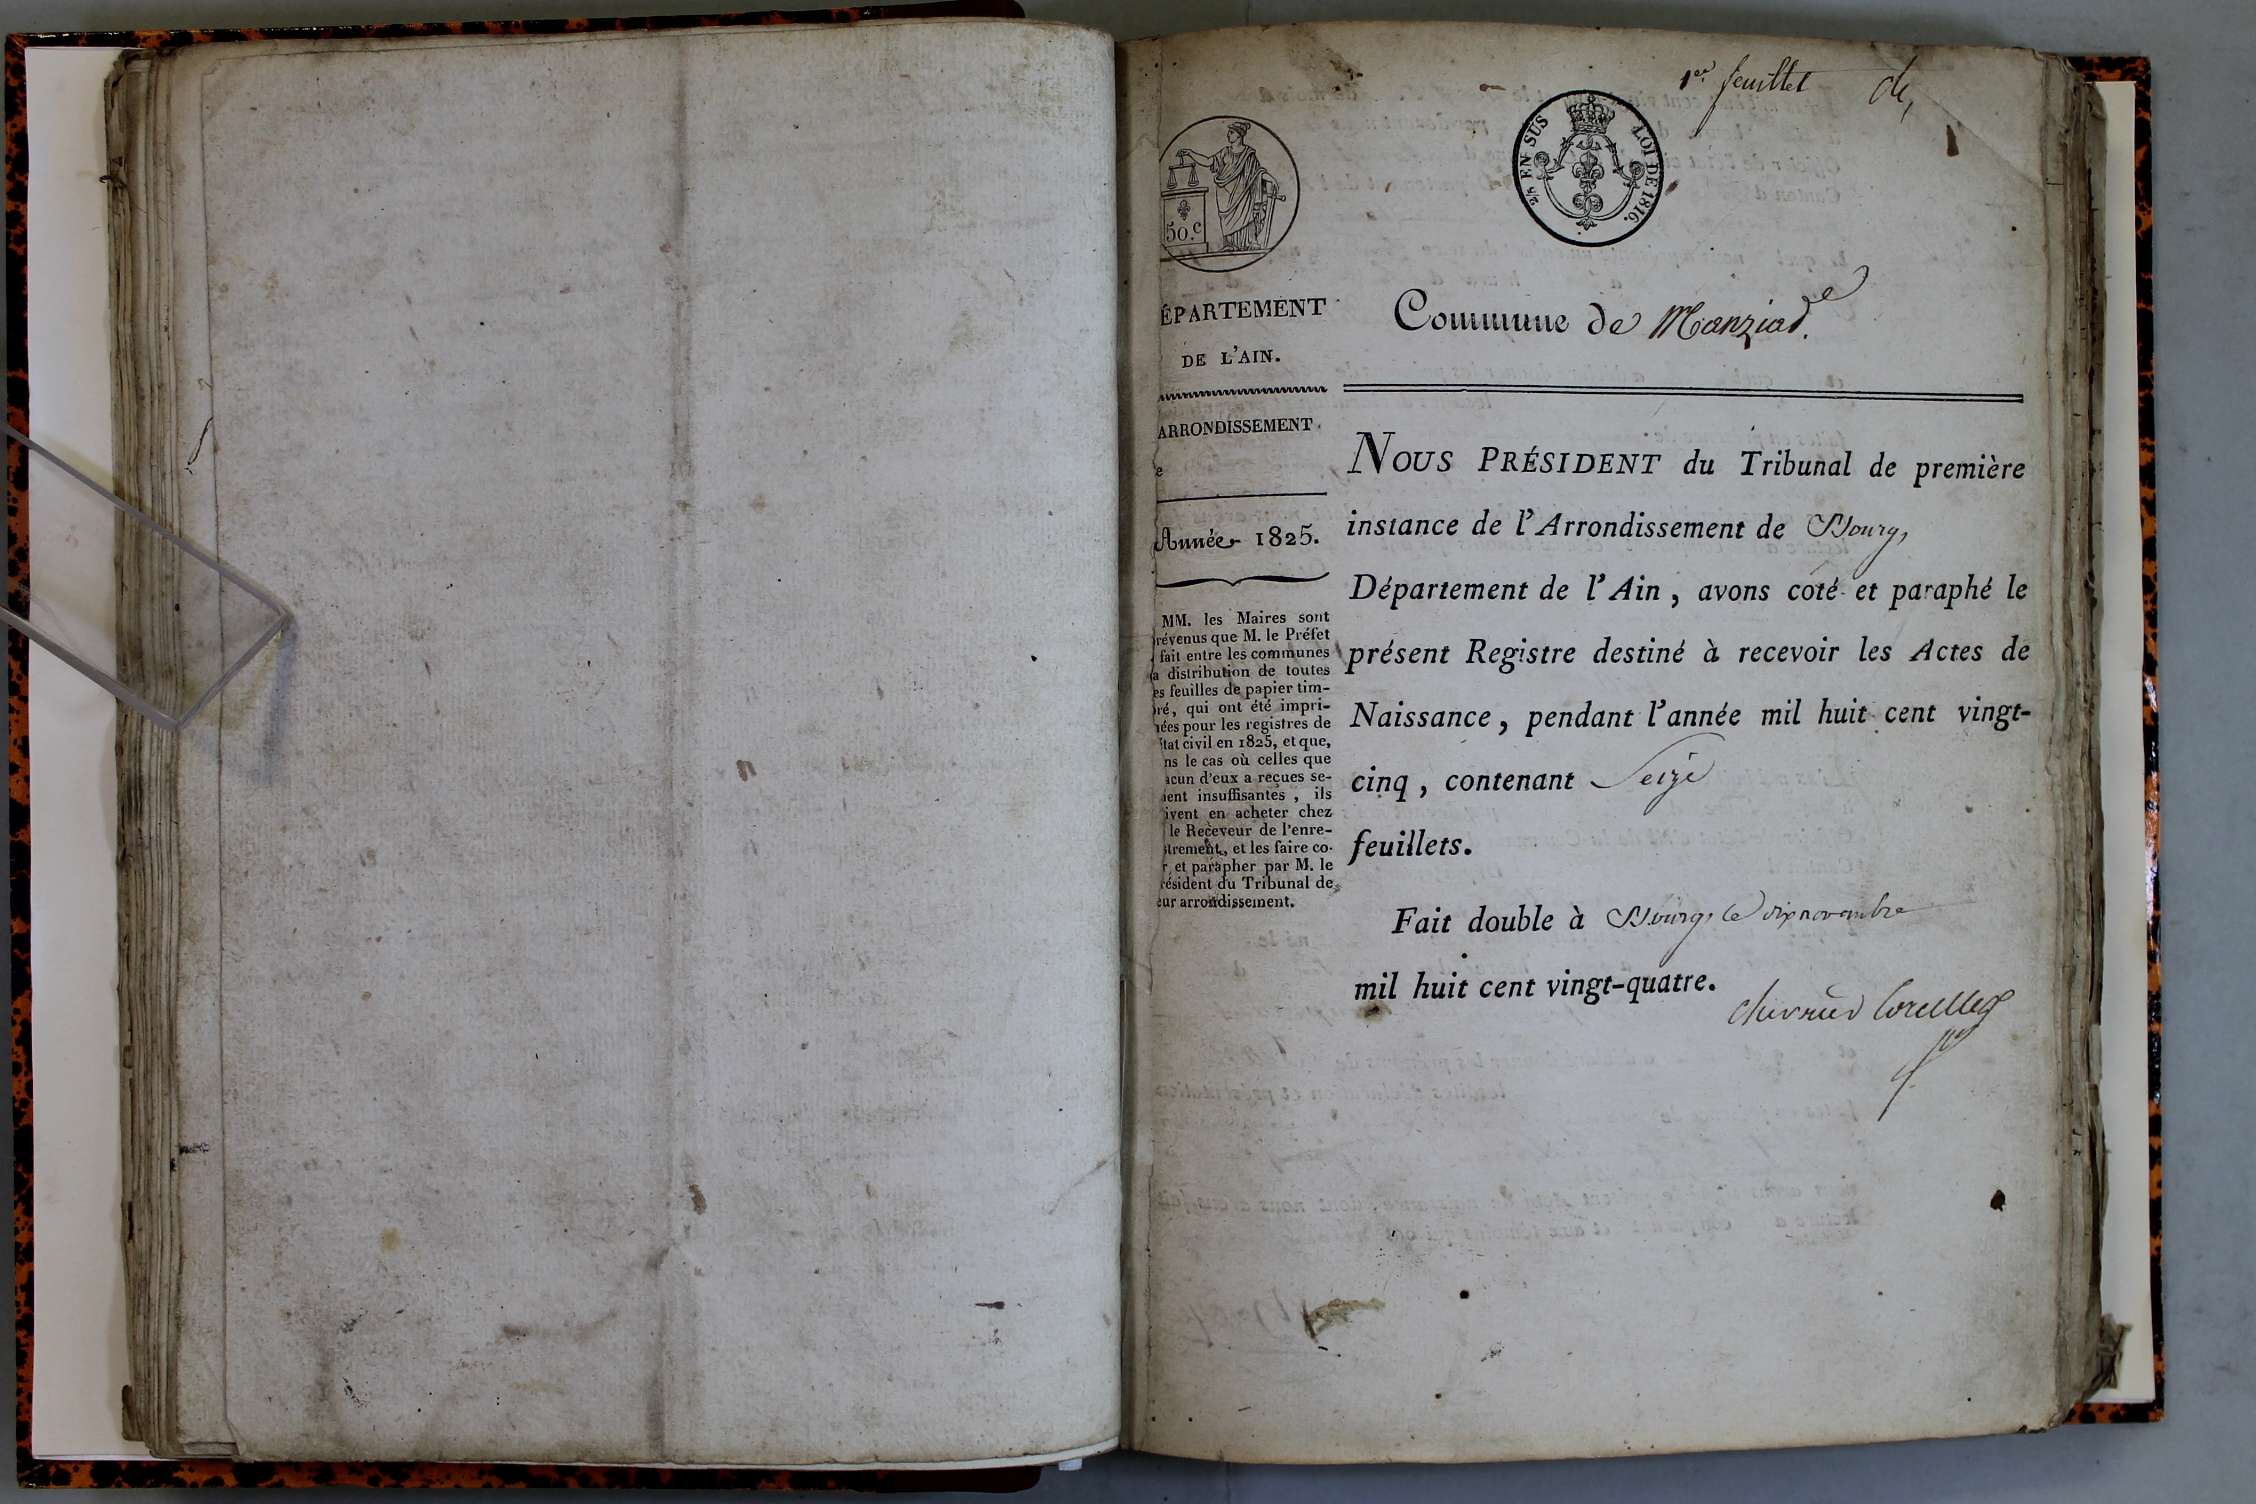 1er feuillet
2/5 EN SUS LOI DE 1816.
50.c
ÉPARTEMENT
DE L'AIN.
ARRONDISSEMENT
e
Année 1825.
MM. les Maires sont
révenus que M. le Préfet
fait entre les communes
a distribution de toutes
es feuilles de papier tim-
ré, qui ont été impri-
ées pour les registres de
tat civil en 1825, et que,
ns le cas où celles que
acun d'eux a reçues se-
ient insuffisantes, ils
ivent en acheter chez
le Receveur de l'enre-
strement, et les faire co-
r et parapher par M. le
résident du Tribunal de
eur arrondissement.
Commune de Manziad.
NOUS PRÉSIDENT du Tribunal de première
instance de l'Arrondissement de Bourg,
Département de l'Ain, avons coté et paraphé le
présent Registre destiné à recevoir les Actes de
Naissance, pendant l'année mil huit cent vingt-
cinq, contenant Seize
feuillets.
Fait double à Bourg, le dix novembre
mil huit cent vingt-quatre.